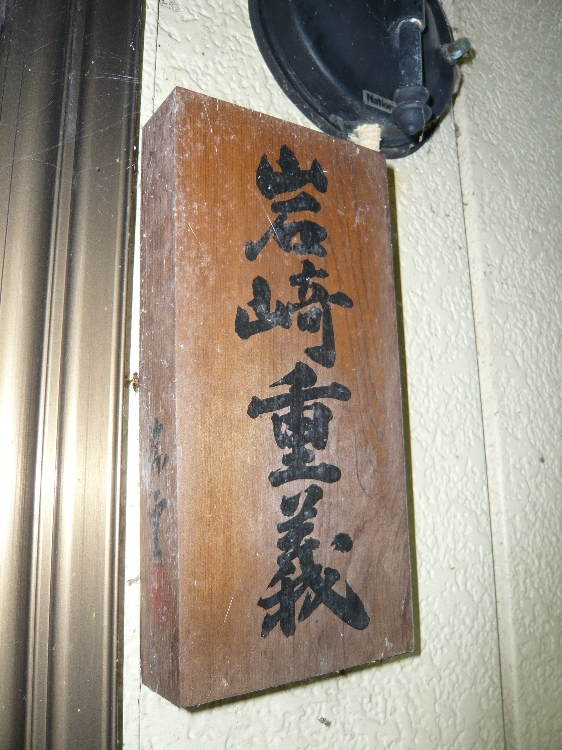 岩崎重義
National